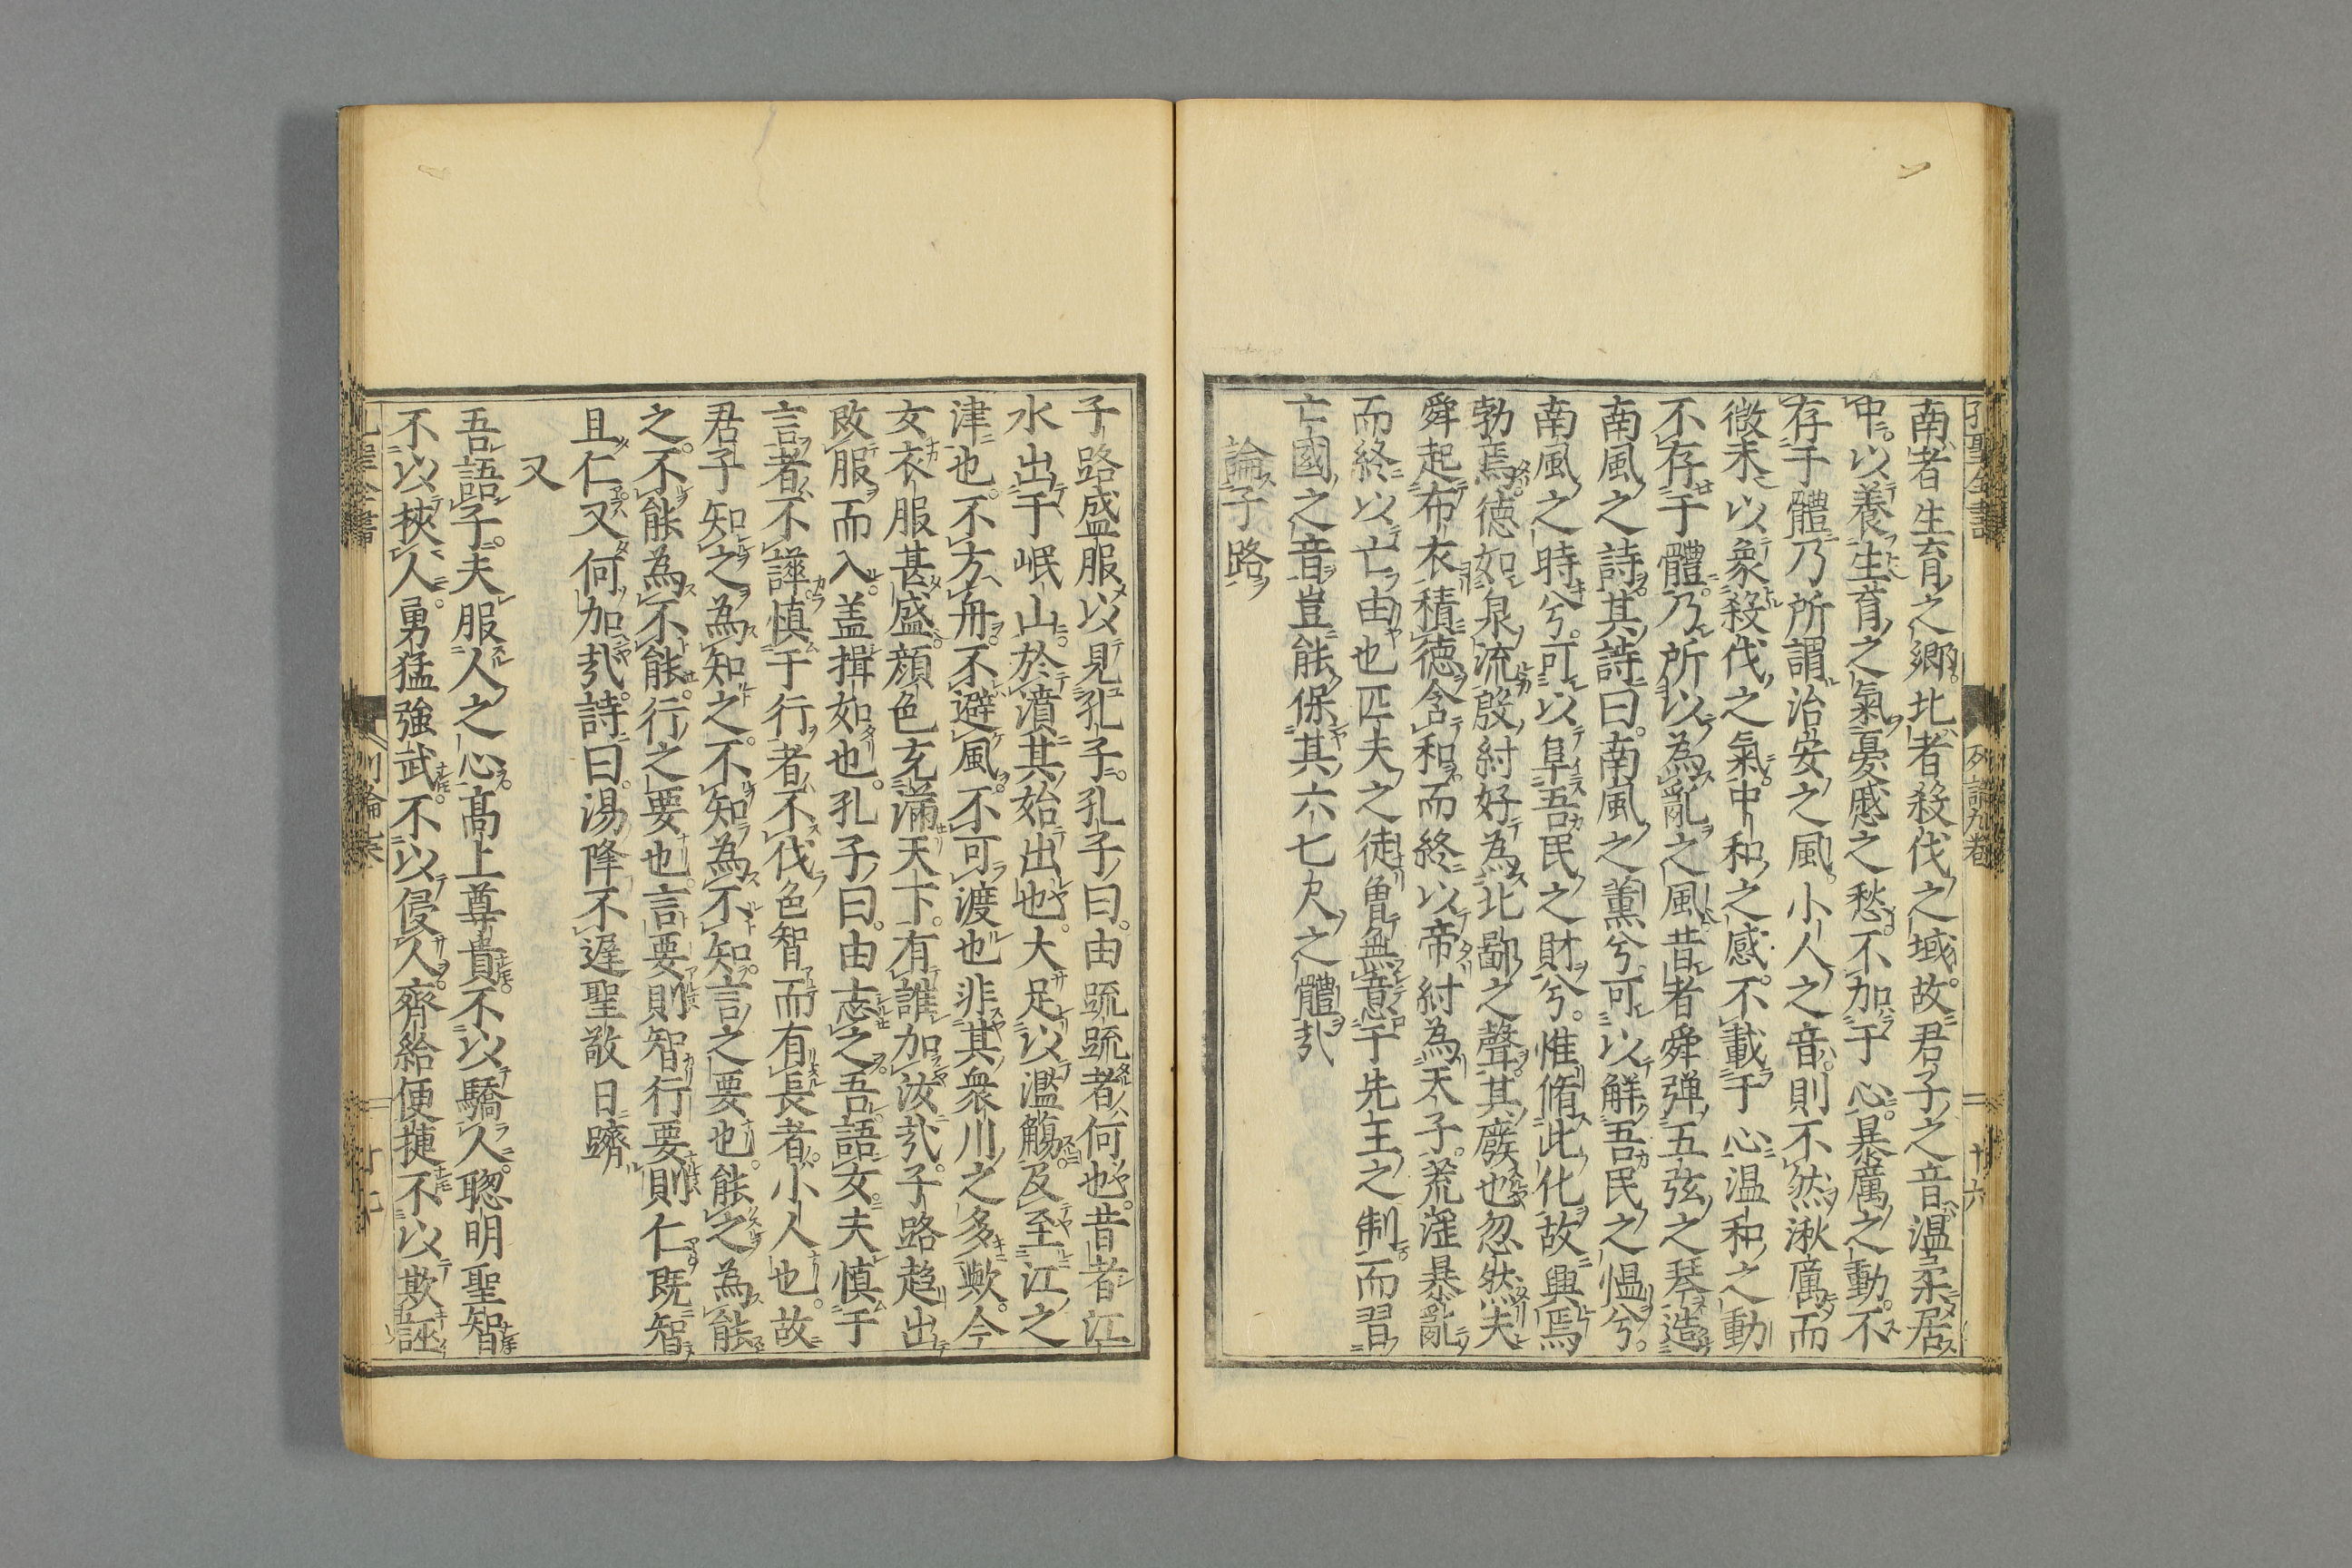 南者生育之鄉北者殺伐之域故君子之音溫柔居
中以養生育之氣憂慼之愁不加于心暴厲之動不
存于體乃所謂治安之風小人之音則不然湫厲而
微末以象殺伐之氣中和之感不載于心温和之動
不存于體乃所以為亂之風昔者舜弾五弦之琴造
南風之詩其詩曰南風之薫兮可以解吾民之慍兮
南風之時兮可以阜吾民之財兮惟脩此化故興焉
勃焉徳如泉流殷紂好為北鄙之聲其廢也忽然夫
舜起布衣積徳含和而終以帝紂為天子荒滛暴亂
而終以亡由也匹夫之徒曽無意于先王之制而習
亡國之音豈能保其六七尺之體㢤
論子路
子路盛服以見孔子孔子曰由䟽䟽者何也昔者江
水出于岷山於濆其始出也大足以濫觴及至江之
津也不方舟不避風不可渡也非其衆川之多歟今
女衣服甚盛顔色充滿天下有誰加汝㢤子路趋出
改服而入盖揖如也孔子曰由志之吾語女夫慎于
言者不譁慎于行者不伐色智而有長者小人也故
君子知之為知之不知為不知言之要也能之為能
之不能為不能行之要也言要則智行要則仁既智
且仁又何加㢤詩曰湯降不遲聖敬日躋
又
吾語子夫服人之心高上尊貴不以驕人聦明聖智
不以挾人勇猛強武不以侵人齊給便捷不以欺誣